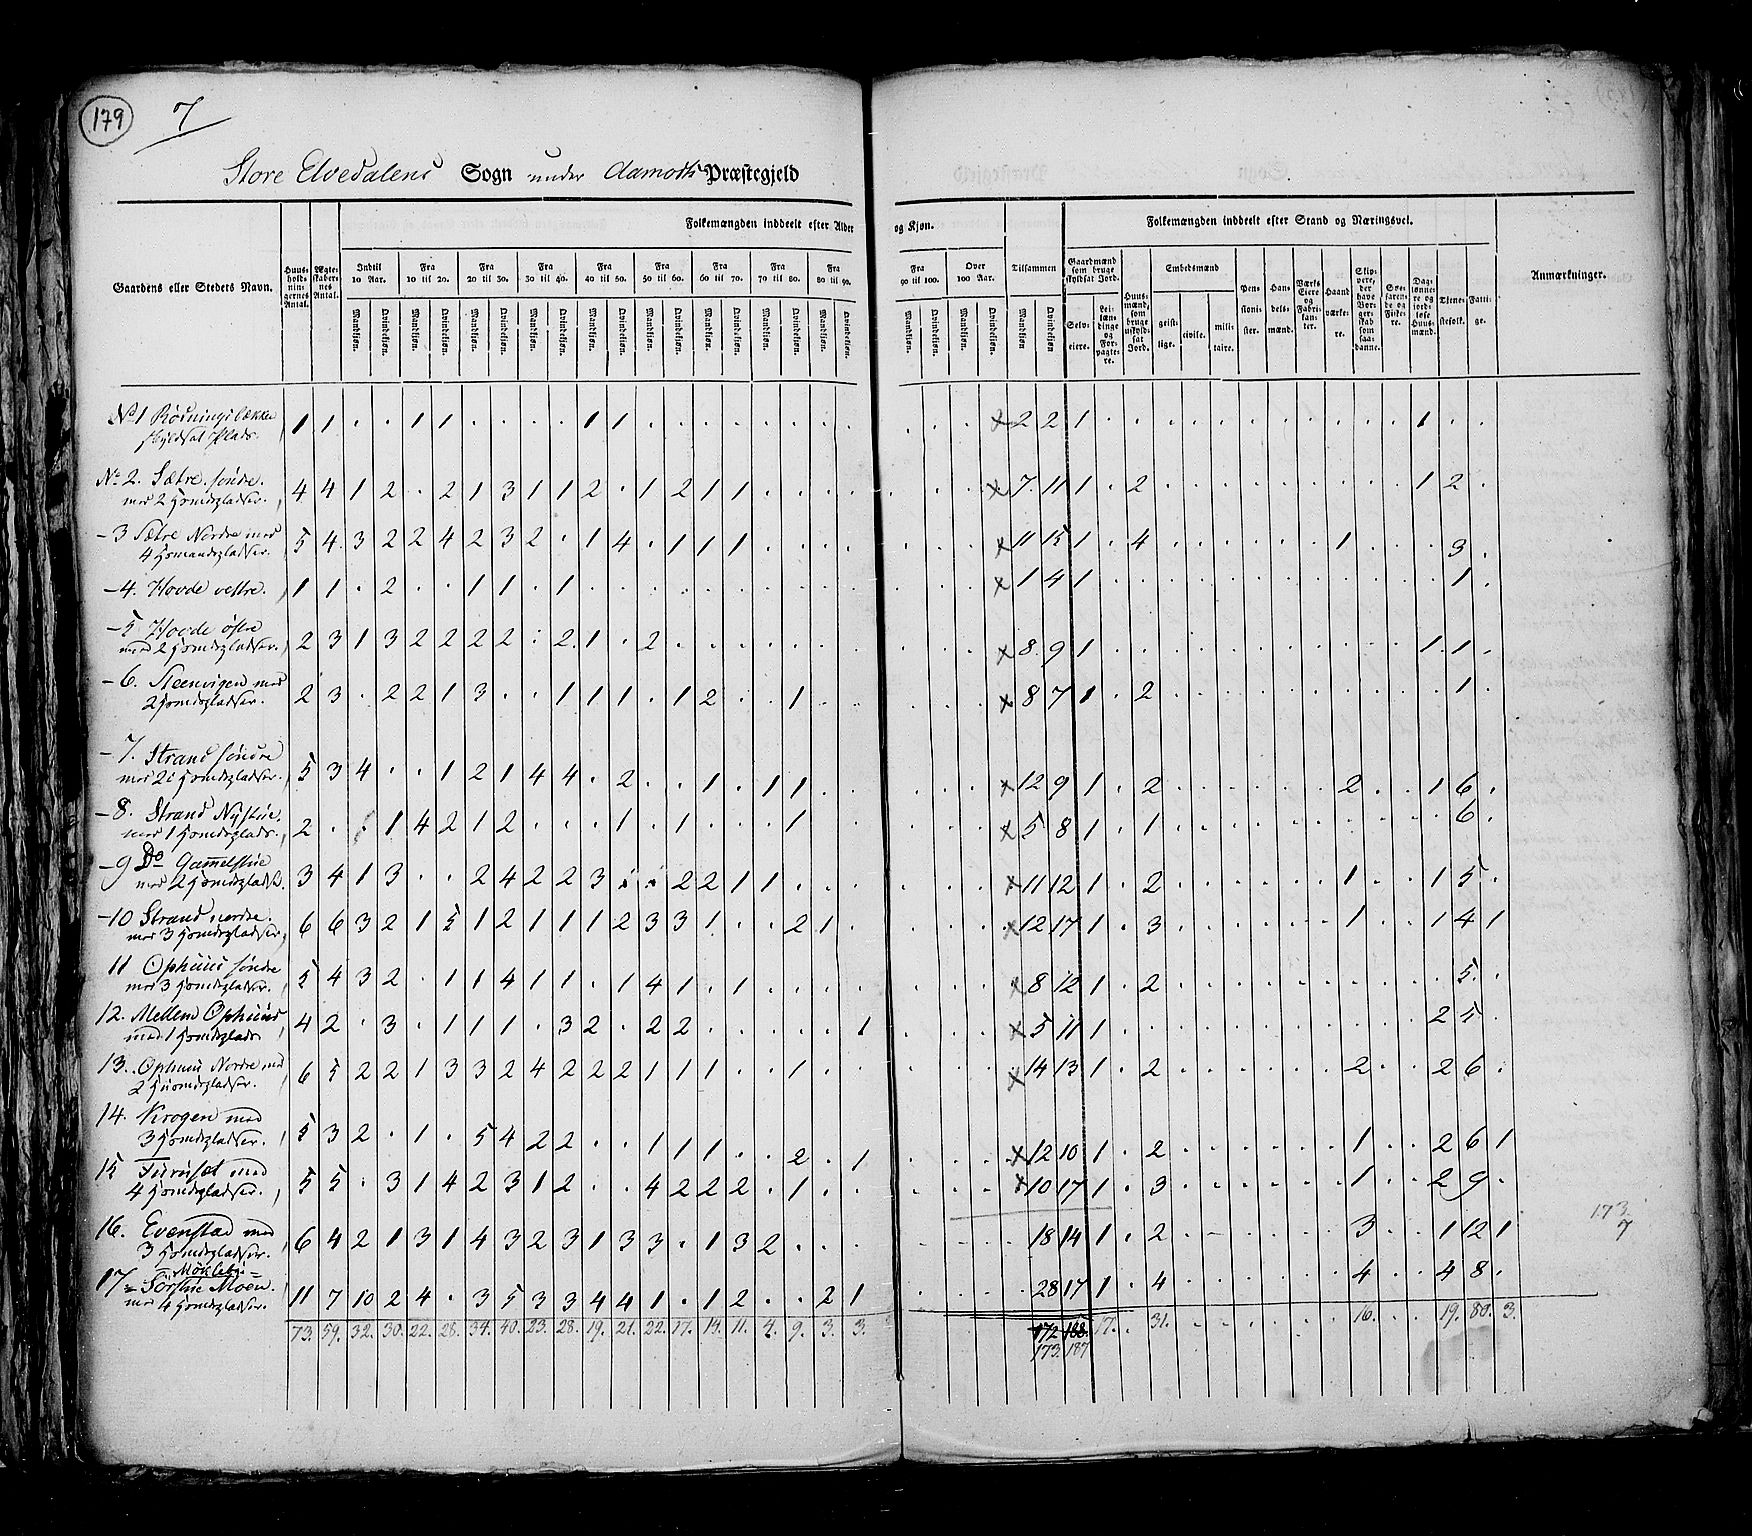 179
7
Store Elvedalens Sogn under Aamodts Præstegjeld
Gaardens eller Stedets Navn.
Huus-holdningernes Antal.
Ægteskabernes Antal.
Folkemængden inddeelt efter Alder og Kjøn.
Indtil 10 Aar. Fra 10 til 20. Fra 20 til 30. Fra 30 til 40. Fra 40 til 50. Fra 50 til 60. Fra 60 til 70. Fra 70 til 80. Fra 80 til 90. Fra 90 til 100. Over 100 Aar. Tilsammen
Mandkjøn. Qvindekjøn.
Folkemængden inddeelt efter Stand og Næringsvei.
Gaardmænd som bruge skyldsat Jord.
Selv-eiere. Lei-lændinge og For-pagtere.
Huusmænd, som bruge uskyldsat Jord.
Embedsmænd
geistlige. civile. militaire.
Pensionister. Handelsmænd. Værks Eiere og Fabrikanter. Haandværkere.
Skippere, der have Borgerskab som saadanne.
Søefarende og Fiskere. Dagлønnere og jordløse Huusmænd. Tjenestefolk. Fattige.
Anmærkninger.
No 1 skyldsat Plads. 1 1 . . 1 1 . . . . 1 1 . . . . . . . . x 2 2 1 . . . . . . . . . . . 1 . .
No 2. Sætre søndre. med 2 Huusmdspladser. 4 4 1 2 . 2 1 3 1 1 2 . 1 2 1 1 . . . . x 7 11 1 . 2 . . . . . . . . . . 1 2 .
- 3 Sætre Nordre med 4 Huusmandspladser. 5 4 3 2 2 4 2 3 2 . 1 4 . 1 1 1 . . . . x 11 15 1 . 4 . . . . . . 1 . . . 3 .
- 4. Hovde vestre. 1 1 . 2 . . 1 1 . 1 . . . . . . . . . . x 1 4 1 . . . . . . . . . . . . 1 .
- 5 Hovde østre med 2 Huusmdspladser. 2 3 1 3 2 2 2 2 . 2 1 . 2 . . . . . . . x 8 9 1 . . . . . . . . . . . 1 1 .
- 6. Steenvigen med 2 Huusmdspladser. 2 3 . 2 2 1 3 . . 1 1 1 . 1 2 . . 1 . . x 8 7 1 . 2 . . . . . . . . . . . 1 .
- 7. Strand søndre med 2 Huusmdspladser. 5 3 4 . . 1 2 1 4 4 . 2 . . 1 . 1 1 . . x 12 9 1 . 2 . . . . . . 2 . . 1 6 .
- 8. Strand Nystue. med 1 Huusmdsplads. 2 . . 1 4 2 1 2 . . . 1 . 1 . . . 1 . . x 5 8 1 . 1 . . . . . . . . . . 6 .
- 9 Do Gammelstue med 2 Huusmdspladser. 3 4 1 3 . . 2 4 2 2 3 . . 2 2 1 1 . . . x 11 12 1 . 2 . . . . . . 1 . . 1 5 .
- 10 Strand nordre. med 3 Huusmdspladser. 6 6 3 2 1 5 1 2 1 1 1 2 3 3 1 . . 2 1 . x 12 17 1 . 3 . . . . . . 1 . . 1 4 1
11 Ophuus søndre med 3 Huusmdspladser. 5 4 3 2 . 1 1 4 1 1 . 1 4 1 . 1 . . . . x 8 12 1 . 2 . . . . . . . . . . 5 .
12. Mellem Ophuus med 1 Huusmdsplads 4 2 . 3 . 1 1 1 . 3 2 . 2 2 . . . . . 1 x 5 11 1 . . . . . . . . . . . 2 5 .
13. Ophuus Nordre med 2 Huusmdspladser. 6 5 2 2 1 3 3 2 4 2 2 2 1 1 1 . . 1 . . x 14 13 1 . 2 . . . . . . 2 . . 2 6 .
14. Krogen med 3 Huusmdspladser. 5 3 2 . 1 . 5 4 2 2 . . 1 1 1 . . 2 . 1 x 12 10 1 . 2 . . . . . . 1 . . 2 6 1
15 Furuset med 4 Huusmdspladser. 5 5 . 3 1 4 2 3 1 2 . . 4 2 2 2 . 1 . . x 10 17 1 . 3 . . . . . . 1 . . 2 9 .
16. Evenstad med 3 Huusmdspladser. 6 4 2 1 3 1 4 3 2 3 1 3 3 . 1 3 2 . . . 18 14 1 . 2 . . . . . . 3 . . 1 12 1
173
7
17 = Møklebye = Moen. med 4 Huusmdspladser. 11 7 10 2 4 . 3 5 3 3 4 4 1 . 1 2 . . 2 1 28 17 1 . 4 . . . . . . 4 . . 4 8 .
73. 59. 32. 30. 22. 28. 34. 40. 23. 28. 19. 21. 22. 17. 14. 11. 4. 9. 3. 3. 172 188 17. . 31. . . . . . . 16. . . 19. 80. 3.
173. 187